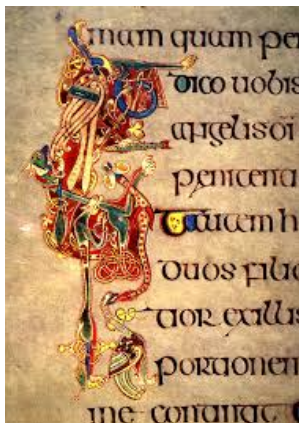 mam quam pe
dico uobis
angelis di
penitentia
autem h
duos filio
tior ex illis
portionem
me contingit